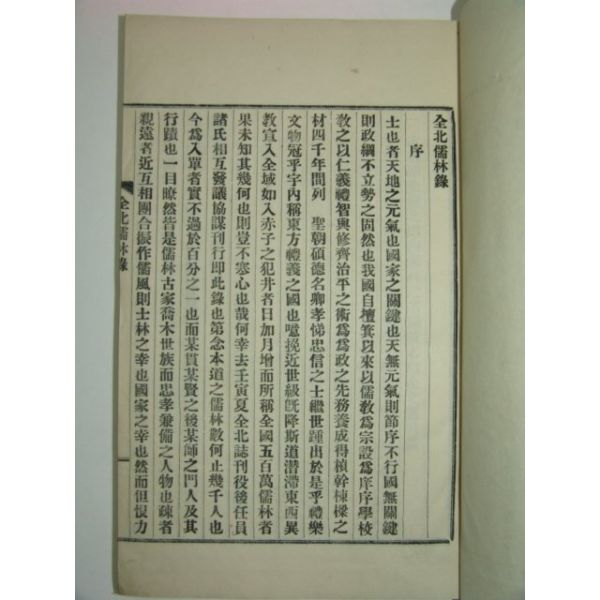 全北儒林錄
序
士也者天地之元氣也國家之關鍵也天無元氣則節序不行國無關鍵
則政綱不立勢之固然也我國自壇箕以來以儒教爲宗設爲庠序學校
教之以仁義禮智與修齊治平之術爲爲政之先務養成得楨幹棟樑之
材四千年間列 聖朝碩德名卿孝悌忠信之士繼世踵出於是乎禮樂
文物冠乎宇內稱東方禮義之國也噫挽近世級旣降斯道潛滯東西異
教宣入全域如入赤子之犯井者日加月增而所稱全國五百萬儒林者
果未知其幾何也則豈不寒心也哉何幸去壬寅夏全北誌刊役後任員
諸氏相互發議協謀刊行即此錄也第念本道之儒林數何止幾千人也
今爲入單者實不過於百分之一也而某貫某賢之後某師之門人及其
行蹟也一目瞭然皆是儒林古家喬木世族而忠孝兼備之人物也疎者
親遠者近互相團合振作儒風則士林之幸也國家之幸也然而但恨力
全北儒林錄